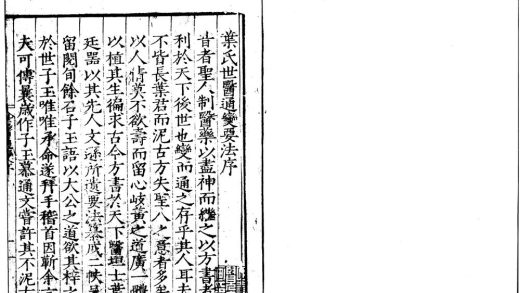 葉氏世醫通變要法序
昔者聖人制醫藥以盡神而繼之以方書者
利於天下後世也變而通之存乎其人耳夫
不皆長葉君而泥古方失聖人之意者多矣
以人情莫不欲壽而留心岐黃之道廣一體
以植其生徧求古今方書於天下醫壇士葉
廷器以其先人文遜所遺要法集成二帙
留閱旬餘召子王語以大公之道欲其梓之
於世子王唯唯承命遂拜手稽首因靳余言
夫可傳異歲作子王慕通文嘗許其不泥古